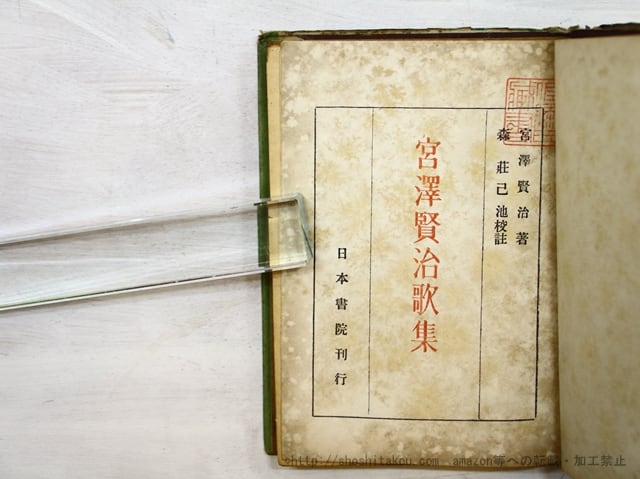 宮澤賢治著
森荘已池校註
宮澤賢治歌集
日本書院刊行
http://sheshitakou.com amazon等への転載・加工禁止